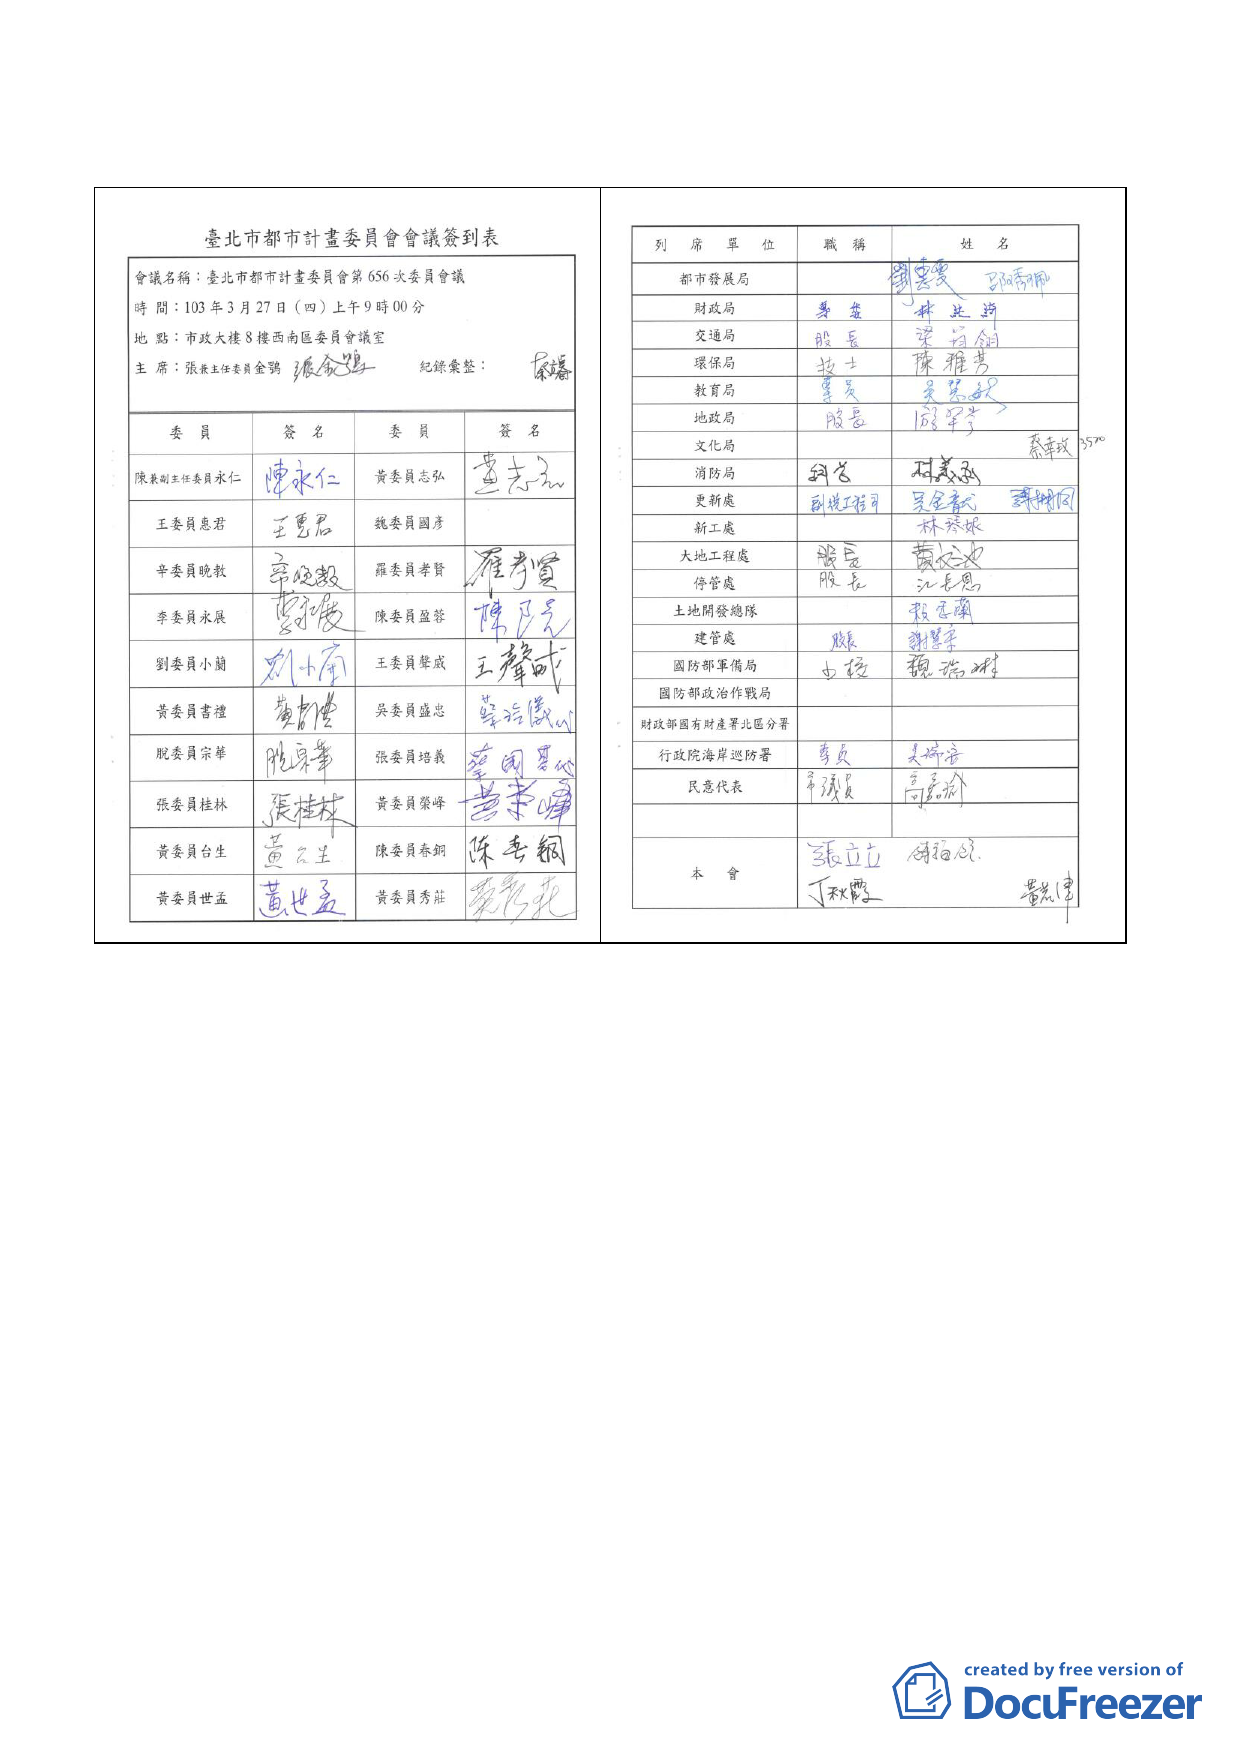 臺北市都市計畫委員會會議簽到表
會議名稱：臺北市都市計畫委員會第 656 次委員會議
時 間：103 年 3 月 27 日（四）上午 9 時 00 分
地 點：市政大樓 8 樓西南區委員會議室
主 席：張兼主任委員金鶚 張金鶚 紀錄彙整：
委 員 簽 名 委 員 簽 名
陳兼副主任委員永仁 陳永仁 黃委員志弘 黃志弘
王委員惠君 王惠君 魏委員國彥
辛委員晚教 辛晚教 羅委員孝賢 羅孝賢
李委員永展 李永展 陳委員盈蓉
劉委員小蘭 劉小蘭 王委員聲威 王聲威
黃委員書禮 黃書禮 吳委員盛忠
脫委員宗華 脫宗華 張委員培義
張委員桂林 張桂林 黃委員榮峰 黃榮峰
黃委員台生 黃台生 陳委員春銅 陳春銅
黃委員世孟 黃世孟 黃委員秀莊 黃秀莊
列 席 單 位 職 稱 姓 名
都市發展局 劉惠雯 邵琇珮
財政局
交通局 股長
環保局 技士 陳雅芳
教育局 專員
地政局 股長
文化局 3520
消防局
更新處 副總工程司
新工處
大地工程處 股長
停管處 股長 江長恩
土地開發總隊
建管處 股長
國防部軍備局 少校 魏瑞琳
國防部政治作戰局
財政部國有財產署北區分署
行政院海岸巡防署 專員
民意代表 市議員 高嘉瑜
本 會 張立立
丁秋霞
created by free version of
DocuFreezer